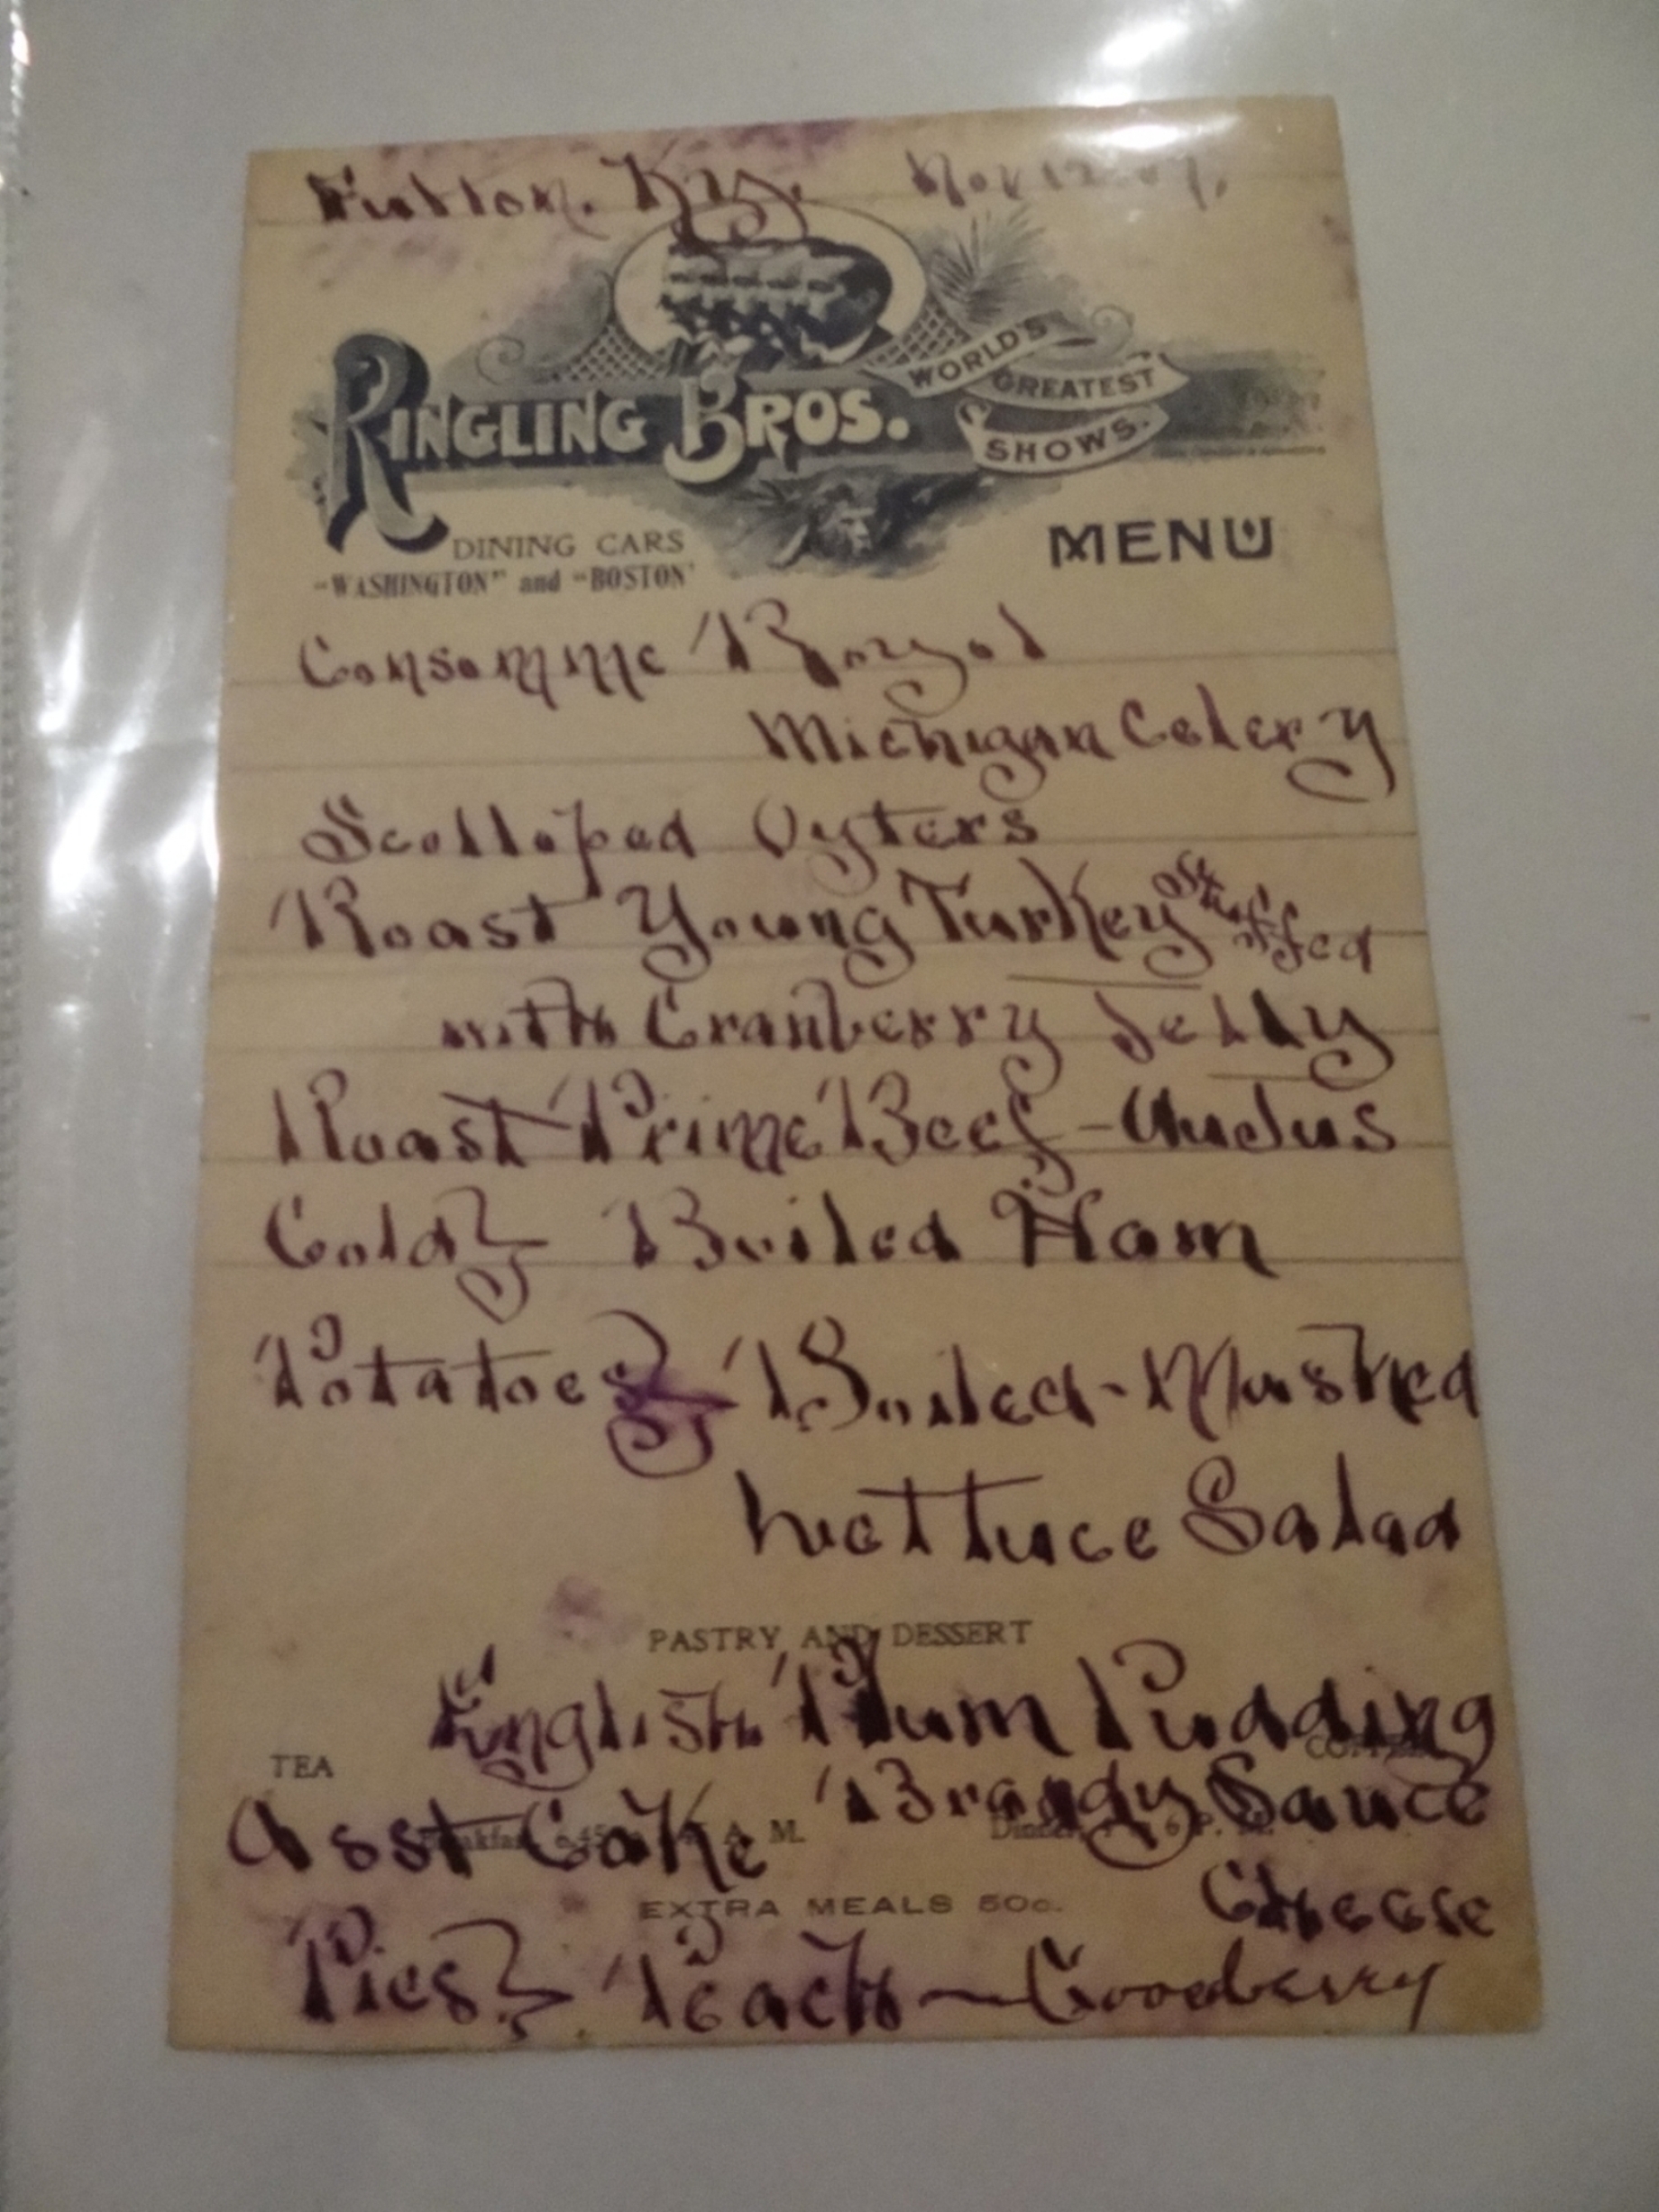 Fulton. Ky. Nov 12 07.
RINGLING BROS. WORLD'S GREATEST SHOWS.
DINING CARS
"WASHINGTON" and "BOSTON"
MENU
Consomme Royal
Michigan Celery
Scolloped Oysters
Roast Young Turkey Stuffed
with Cranberry Jelly
Roast Prime Beef - Au Jus
Cold } Boiled Ham
Potatoes } Boiled - Mashed
Luettuce Salad
PASTRY AND DESSERT
English Plum Pudding
TEA COFFEE
Brandy Sauce
Asst Cake
Breakfast, 6:45 A. M. Dinner, 6 P. M.
Cheese
EXTRA MEALS 50c.
Pies } Peach - Gooseberry